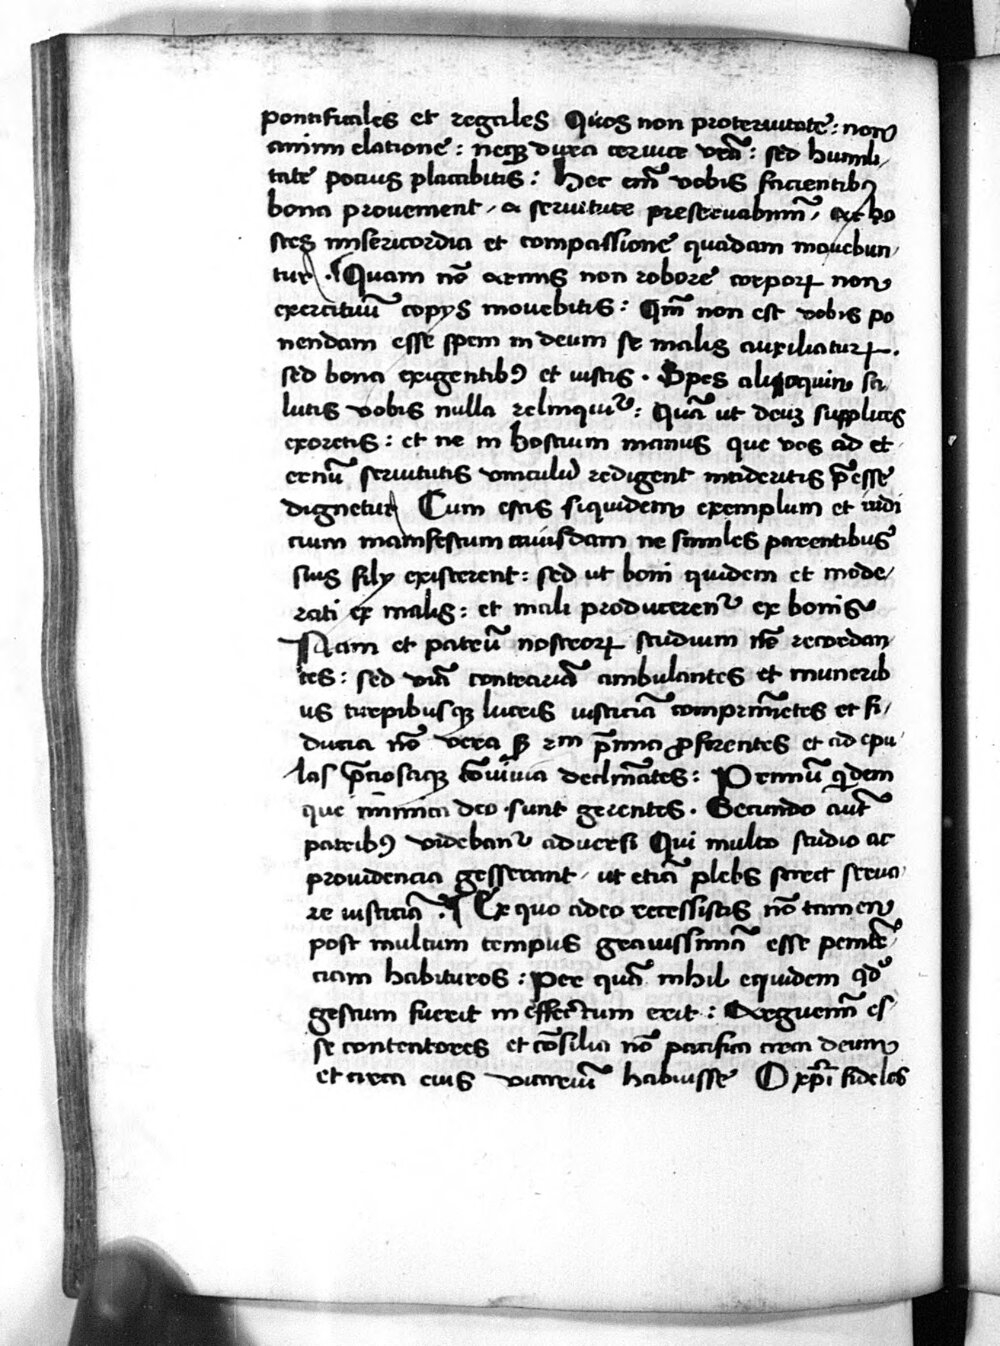 pontificales et regales Quos non proteruitate᷑: non
animi elatione᷑: neqꝫ dura ceruice vr̃a: sed humili⸗
tate potius placabitis: Hec em̃ vobis facientibꝰ
bona prouenient / a seruitute preseruabimini / At ho
stes misericordia et compassione quadam mouebun⸗
tur . ¶ Quam nō armis non robore corporꝝ non
exercituū copys mouebitis: Qm̃ non est vobis po
nendam esse spem in deum se malis auxiliaturꝝ .
sed bona exigentibꝰ et iustis . Spes alioquin sa⸗
lutis vobis nulla relinquit᷑: Quā ut deuꝫ supplices
exoretis: et ne in hostium manus que vos ad et⸗
ernū seruitutis vinculū redigent incideritis p̃esse
dignetur Cum estis siquidem exemplum et iudi
cium manifestum cuiusdam ne similes parentibus
suis filÿ existerent: sed ut boni quidem et mode⸗
rati ex malis: et mali producerent᷑ ex bonis
Nam et patrū nostrorꝝ studium nō recordan
tes: sed viā contrariā ambulantes et munerib
us turpibusqꝫ lucris iusticiā comprim̃etes et fi⸗
ducia nō vera ꝫ in p̃ma ꝓferentes et ad epu⸗
las p̃ciosasqꝫ cōuiuia declinātes: Primū qͥdem
que inimica deo sunt gerentes . Secundo aūt
patribꝰ videbant᷑ aduersi Qui multo studio ac
prouidencia gesserant / ut etiā plebs sciret serua⸗
re iusticiā . ¶ Ex quo adeo recessistis nō tamen
post multum tempus grauissimā esse penitē⸗
ciam habituros: Per quā nihil equidem qd᷑
gestum fuerit in effectum erit: Arguemī es⸗
se contentores et cōsilia nō pacifica circa deum
et circa eius vicariū habuisse O xp̃i fideles